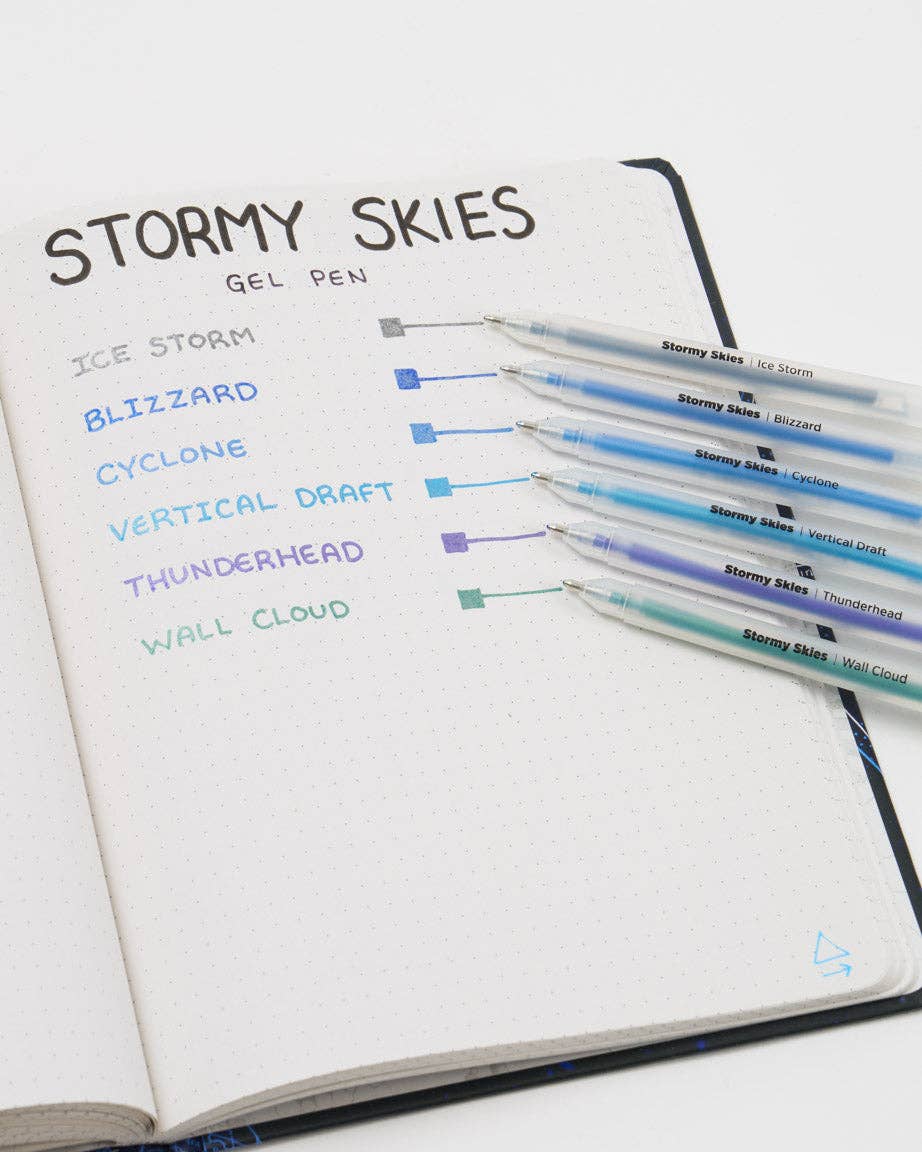 STORMY SKIES
GEL PEN
ICE STORM
BLIZZARD
CYCLONE
VERTICAL DRAFT
THUNDERHEAD
WALL CLOUD
Stormy Skies | Ice Storm
Stormy Skies | Blizzard
Stormy Skies | Cyclone
Stormy Skies | Vertical Draft
Stormy Skies | Thunderhead
Stormy Skies | Wall Cloud